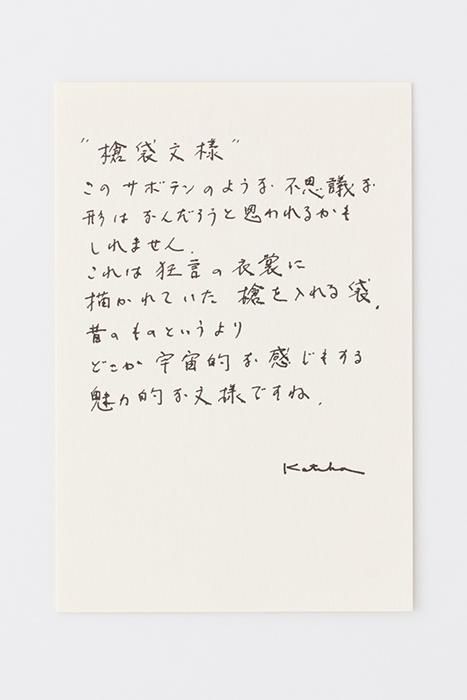 "槍袋文様"
このサボテンのような不思議な
形はなんだろうと思われるかも
しれません.
これは狂言の衣裳に
描かれていた 槍を入れる袋.
昔のものというより
どこか宇宙的な感じもする
魅力的な文様ですね.